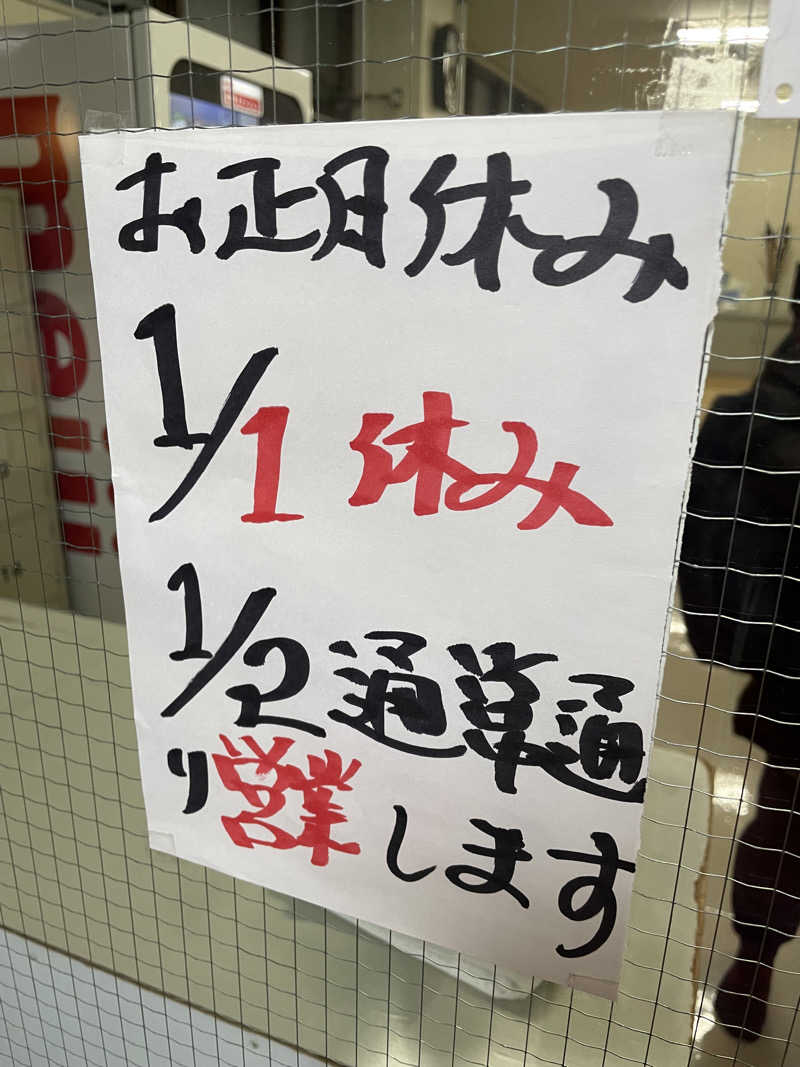 お正月休み
1/1 休み
1/2 通常通
り営業します